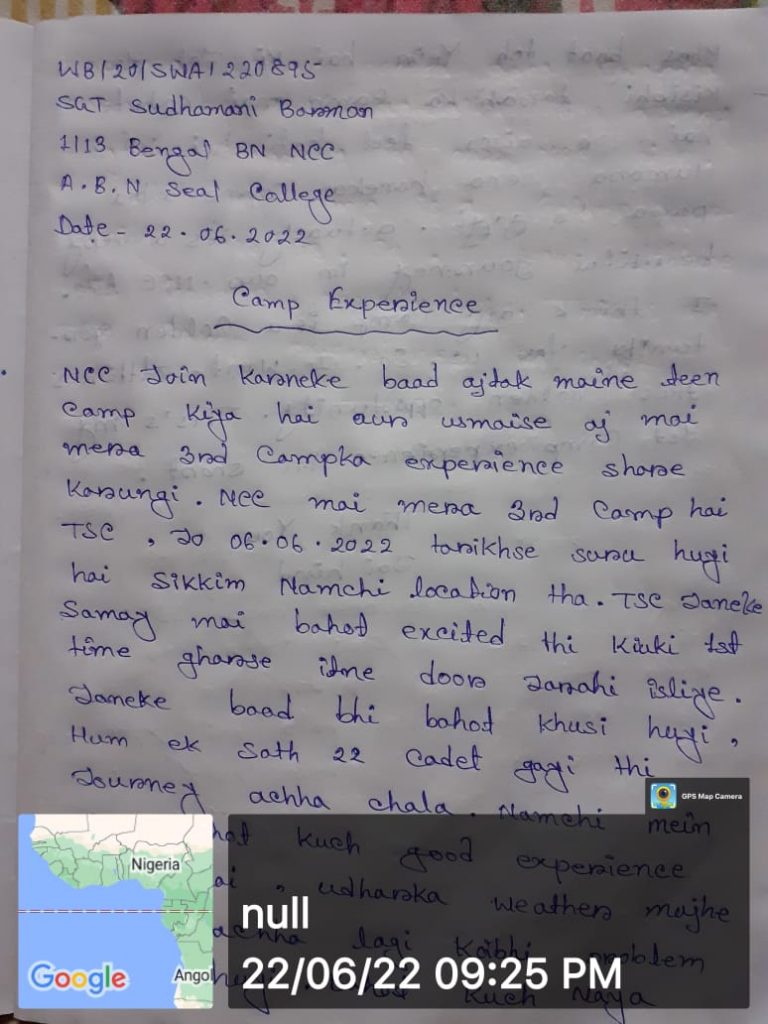 WB/20/SWA/220895
SGT Sudhamani Barman
1/13 Bengal BN NCC
A.B.N Seal College
Date - 22.06.2022
Camp Experience
NCC Join Karneke baad ajtak maine teen
Camp Kiya hai aur usmaise aj mai
mera 3rd Campka experience share
Karungi. NCC mai mera 3rd Camp hai
TSC, Jo 06.06.2022 tarikhse suru huyi
hai Sikkim Namchi location tha. TSC Janeke
Samay mai bahot excited thi Kiuki 1st
time gharse itne door Jarahi isliye.
Janeke baad bhi bahot khusi huyi,
Hum ek sath 22 cadet gayi thi
Journey achha chala. Namchi mein
Kuch good experience
, udharka weather mujhe
achha lagi Kabhi problem
Kuch Naya
GPS Map Camera
Nigeria
Angol
Google
null
22/06/22 09:25 PM